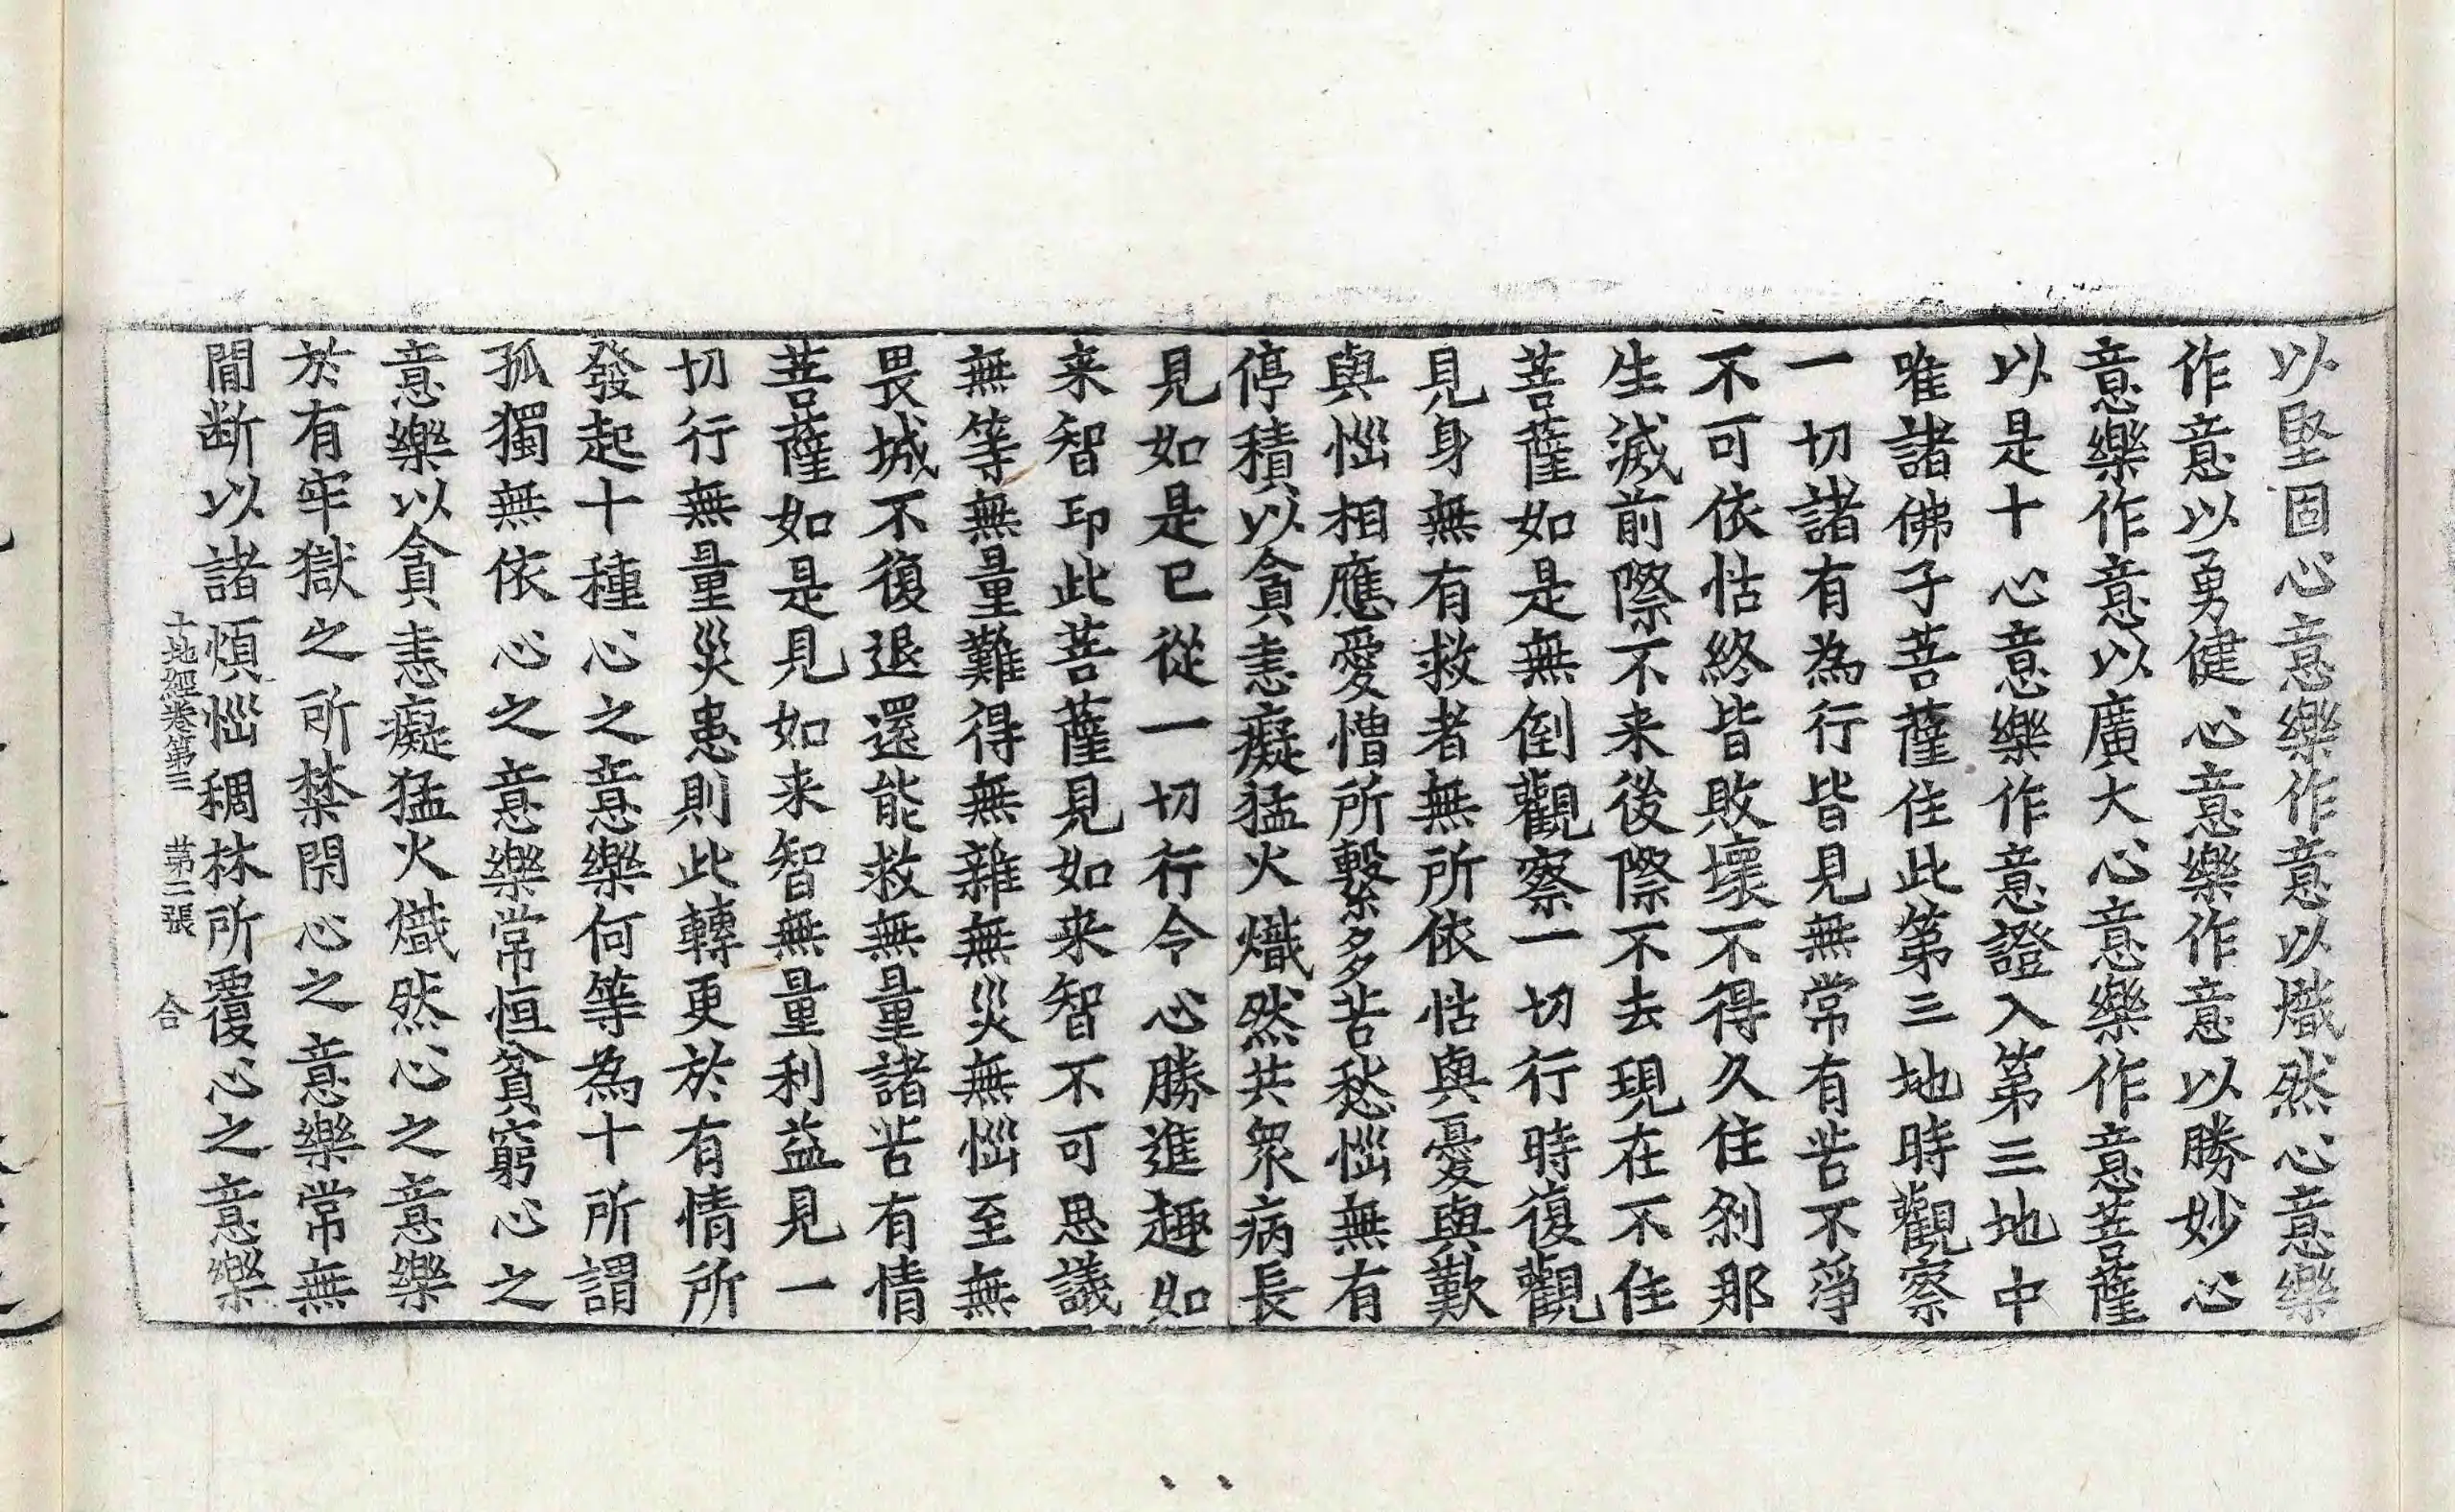 以堅固心意樂作意以熾然心意樂
作意以勇健心意樂作意以勝妙心
意樂作意以廣大心意樂作意菩薩
以是十心意樂作意證入第三地中
唯諸佛子菩薩住此第三地時觀察
一切諸有為行皆見無常有苦不淨
不可依怙終皆敗壞不得久住刹那
生滅前際不来後際不去現在不住
菩薩如是無倒觀察一切行時復觀
見身無有救者無所依怙與憂與歎
與惱相應愛憎所繫多苦愁惱無有
停積以貪恚癡猛火熾然共衆病長
見如是已從一切行令心勝進趣如
来智印此菩薩見如来智不可思議
無等無量難得無雜無災無惱至無
畏城不復退還能救無量諸苦有情
菩薩如是見如来智無量利益見一
切行無量災患則此轉更於有情所
發起十種心之意樂何等為十所謂
孤獨無依心之意樂常恒貧窮心之
意樂以貪恚癡猛火熾然心之意樂
於有牢獄之所禁閇心之意樂常無
閒断以諸煩惱稠林所覆心之意樂
十地經卷第三　第二張　合